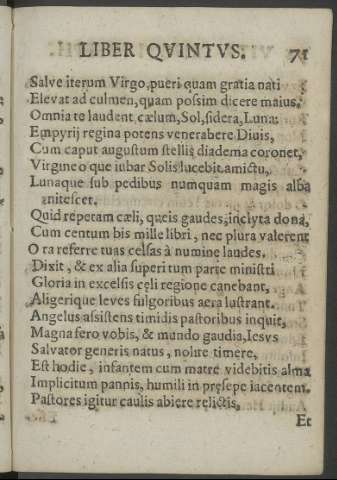 LIBER QVINTVS. 71
Salve iterum Virgo, pueri quam gratia nati
Elevat ad culmen, quam possim dicere maius.
Omnia te laudent, cælum, Sol, sidera, Luna:
Empyrij regina potens venerabere Divis,
Cum caput augustum stellis diadema coronet,
Virgineoque iubar Solis lucebit amictu,
Lunaque sub pedibus numquam magis alba
enitescet.
Quid repetam cæli, queis gaudes, inclyta dona,
Cum centum bis mille libri, nec plura valerent
Ora referre tuas celsas à numine laudes.
Dixit, & ex alia superi tum parte ministri
Gloria in excelsis cęli regione canebant,
Aligerique leves fulgoribus aera lustrant.
Angelus assistens timidis pastoribus inquit,
Magna fero vobis, & mundo gaudia, Iesvs
Salvator generis natus, nolite timere,
Est hodie, infantem cum matre videbitis alma
Implicitum pannis, humili in pręsepe iacentem.
Pastores igitur caulis abiere relictis,
Et